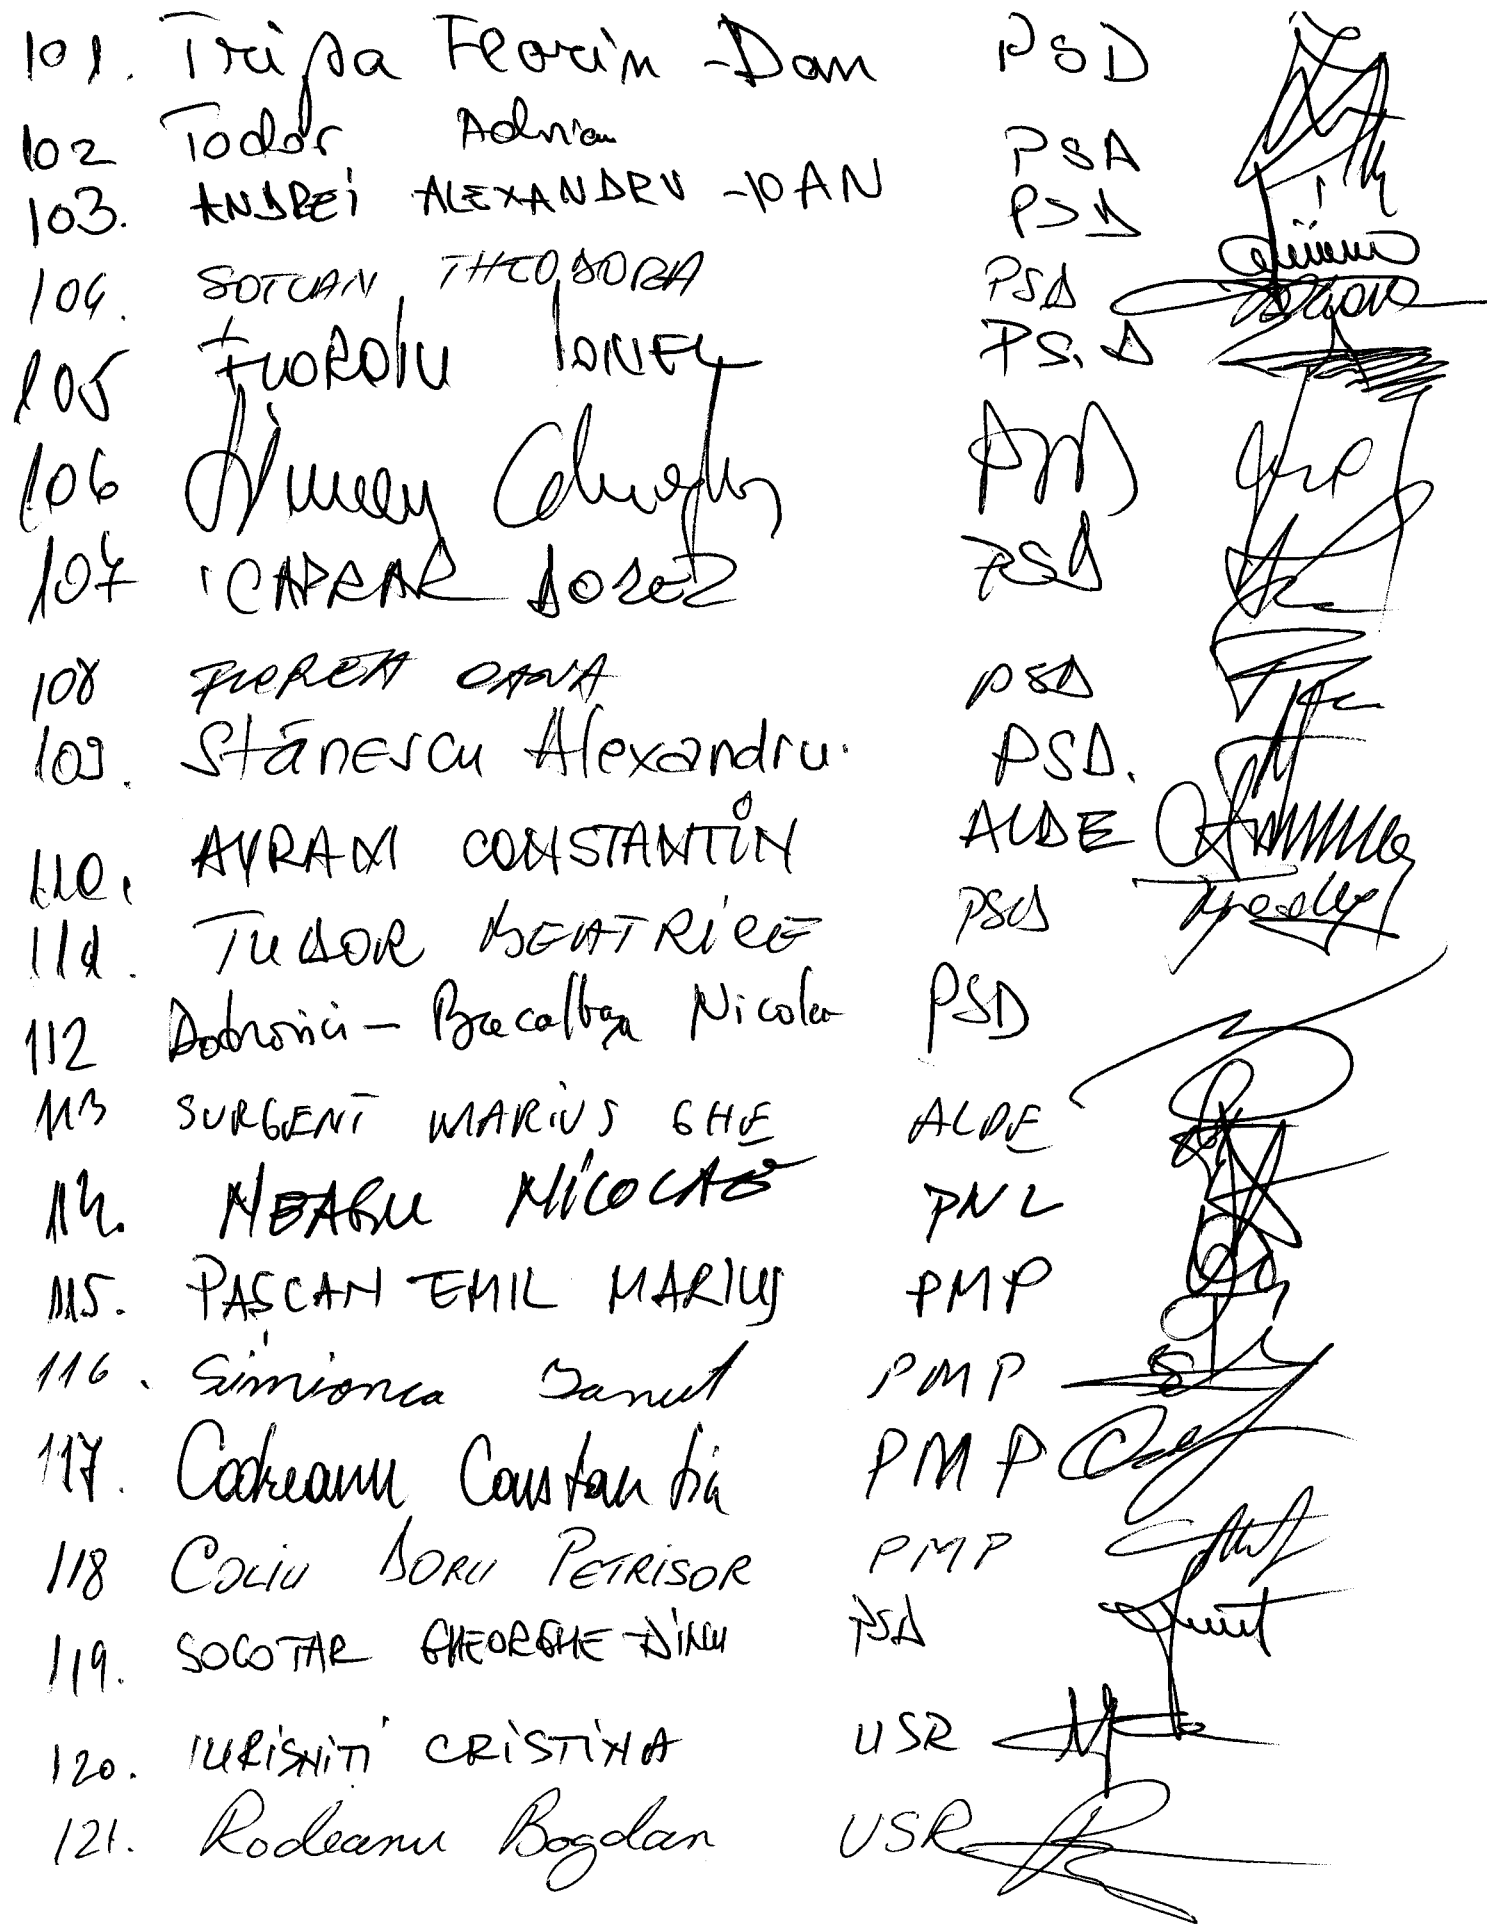 101. Tripa Florin-Dan PSD
102 Todor Adrian PSD
103. ANDREI ALEXANDRU-IOAN PSD
104. SOTCAN THEODORA PSD
105 FLOROIU IONEL PSD
106
107 CAPRAR DOREL PSD
108 FLOREA OANA PSD
109. Stănescu Alexandru. PSD.
110. AVRAM CONSTANTIN ALDE
111. TUDOR BEATRICE PSD
112 Dobrovici-Bacalbașa Nicolae PSD
113 SURGENT MARIUS GHE ALDE
114. NEAGU NICOLAE PNL
115. PAȘCAN EMIL MARIUS PMP
116. Simionca Ionuț PMP
117. Codreanu Constantin PMP
118 COLIU DORU PETRISOR PMP
119. SOCOTAR GHEORGHE-DINU PSD
120. IURIȘNITI CRISTINA USR
121. Rodeanu Bogdan USR